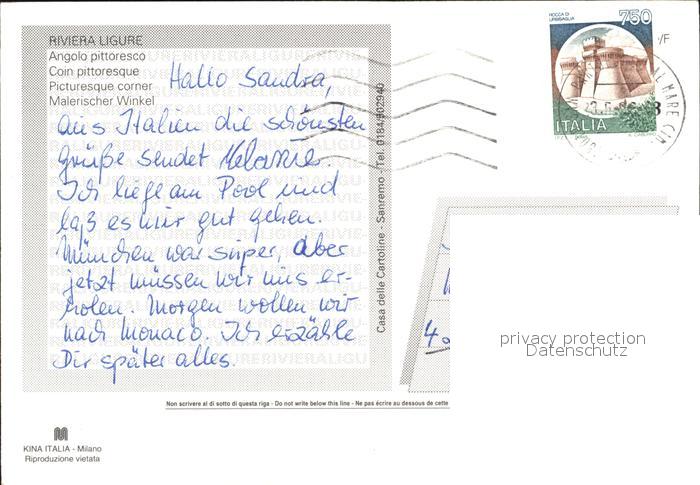 RIVIERA LIGURE
Angolo pittoresco
Coin pittoresque
Picturesque corner
Malerischer Winkel
Hallo Sandra,
aus Italien die schönsten
Grüße sendet Melanie.
Ich liege am Pool und
laß es mir gut gehen.
München war super, aber
jetzt müssen wir uns er-
holen. Morgen wollen wir
nach Monaco. Ich erzähle
Dir später alles.
Casa delle Cartoline - Sanremo - Tel. 0184/502940
ROCCA DI
URBISAGLIA
750
ITALIA
/F
MARE
privacy protection
Datenschutz
Non scrivere al di sotto di questa riga - Do not write below this line - Ne pas écrire au dessous de cette
KINA ITALIA - Milano
Riproduzione vietata